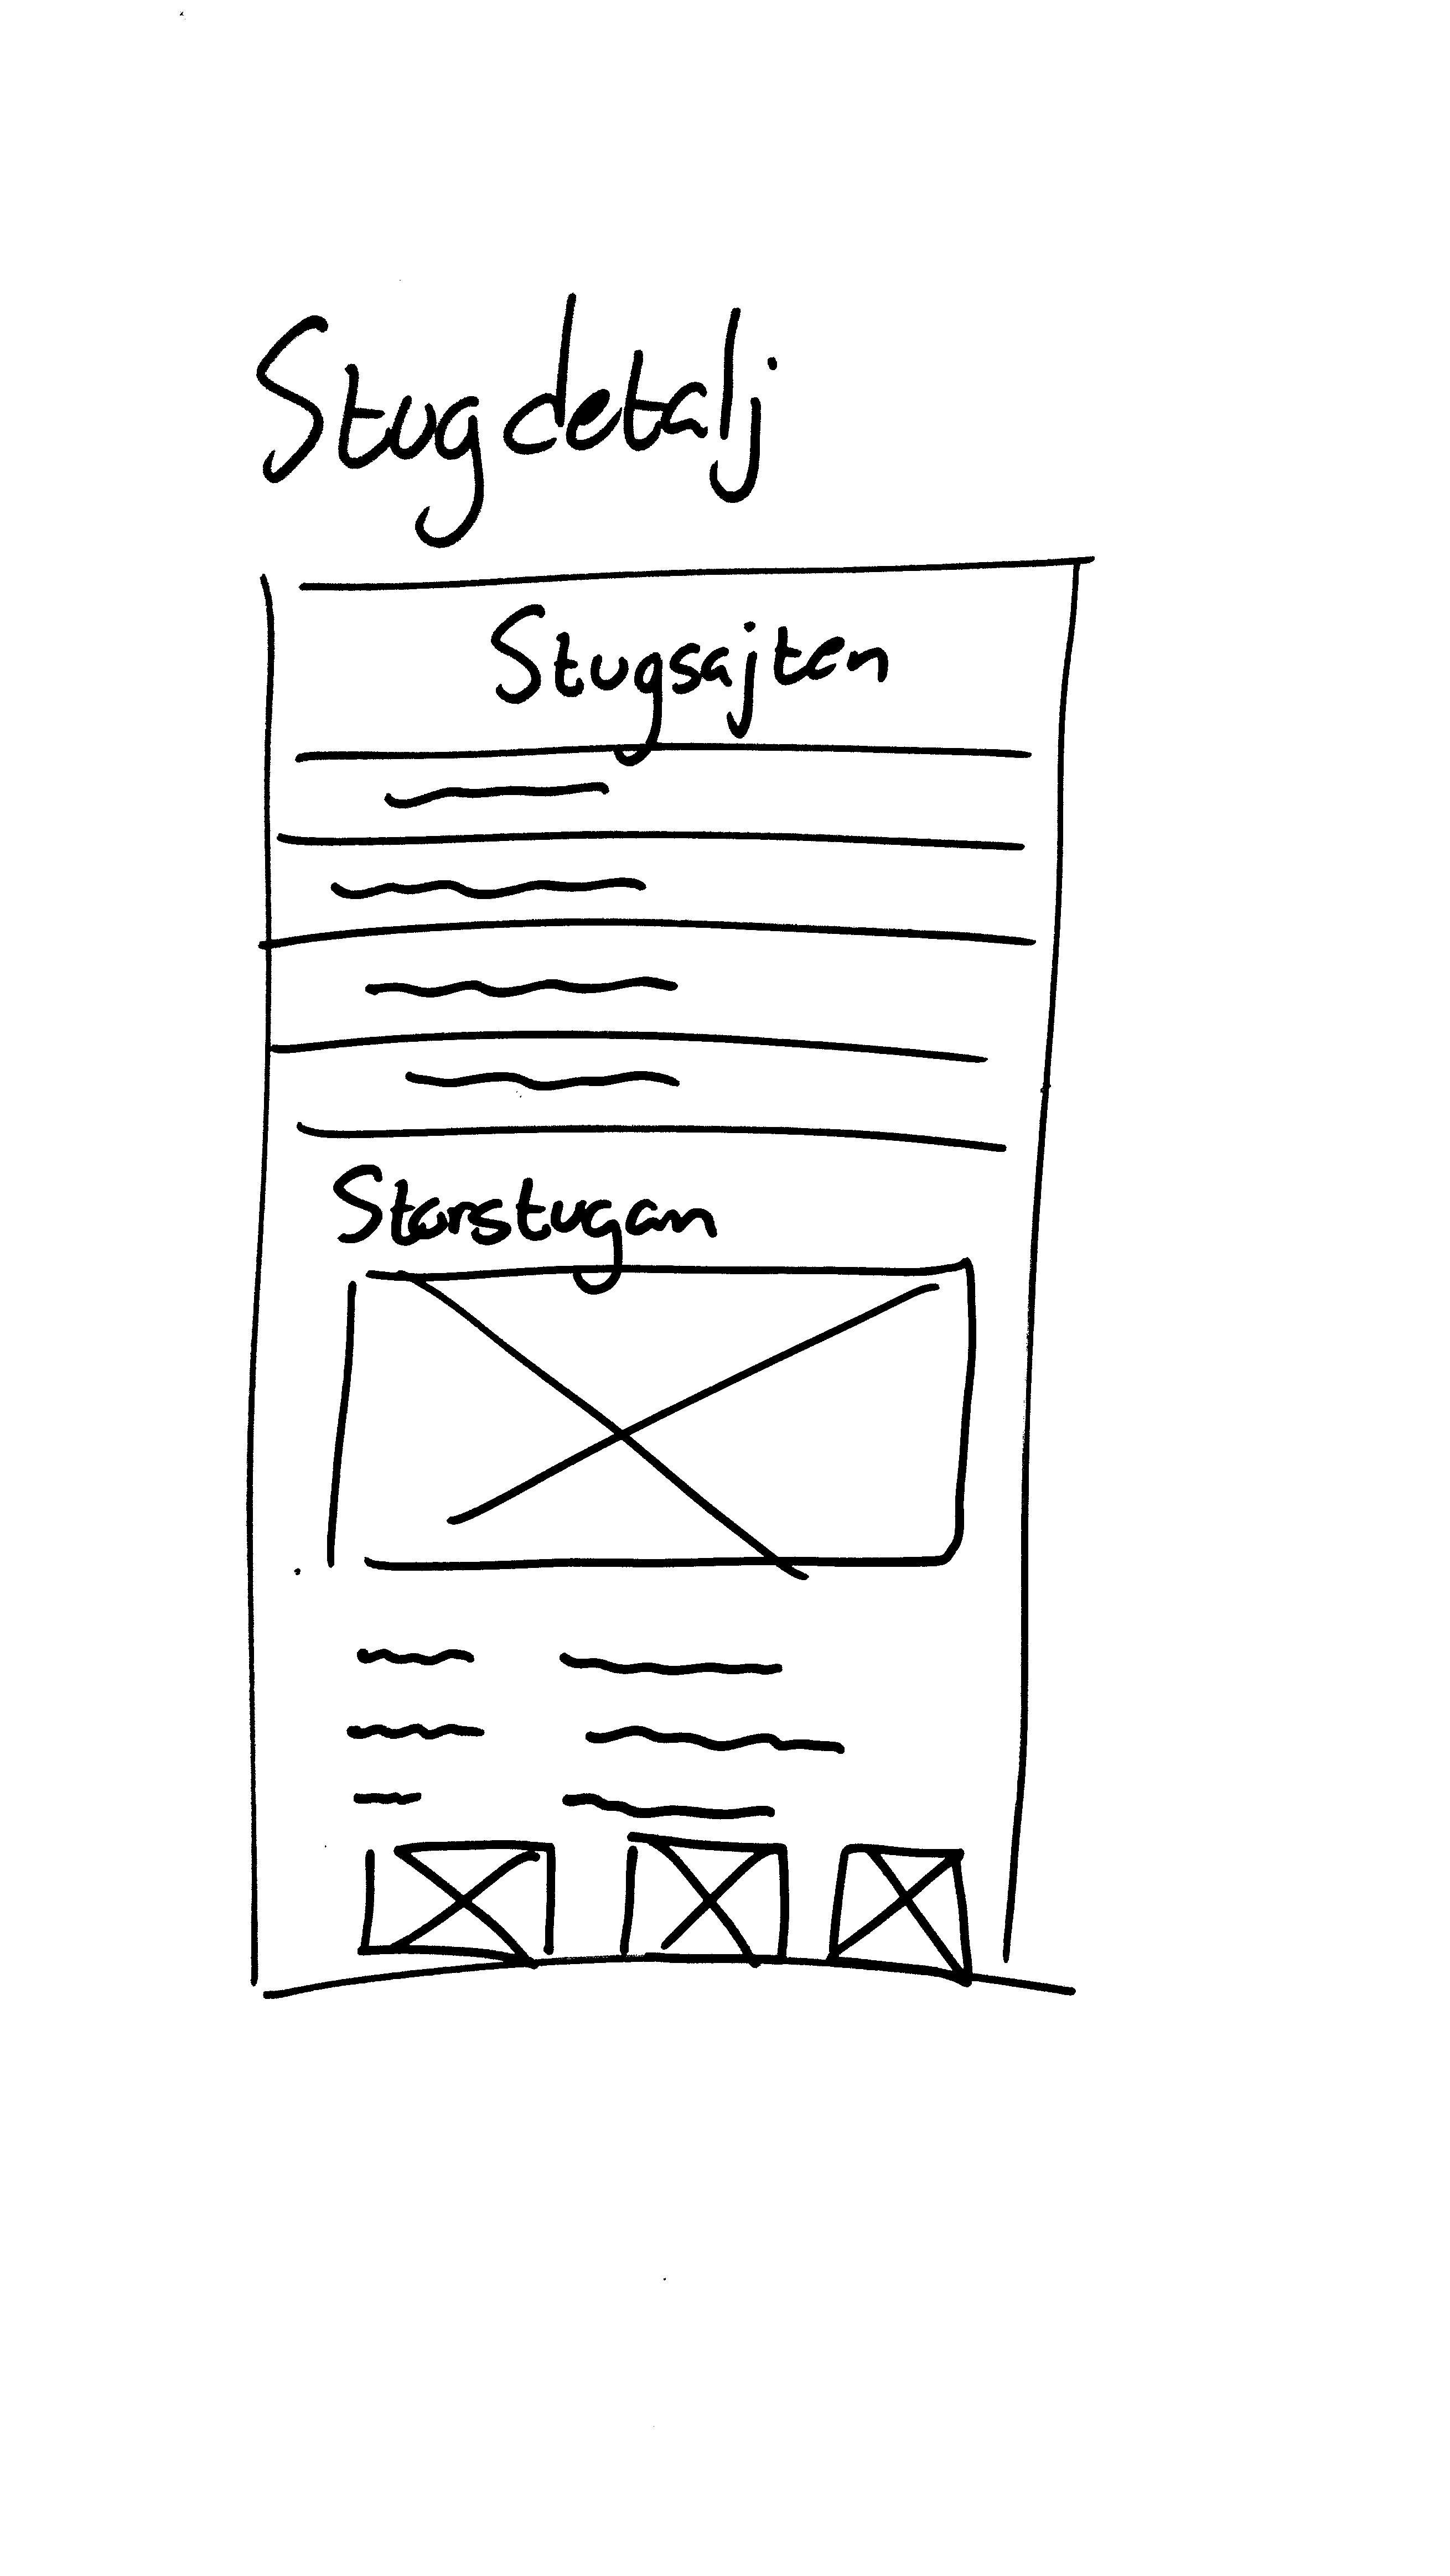 Stugdetalj
Stugsajten
Storstugan